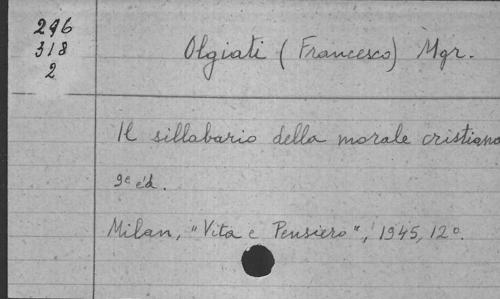 296
318
2
Olgiati (Francesco) Mgr.
Il sillabario della morale cristiana
9e éd.
Milan, "Vita e Pensiero", 1945, 12º.